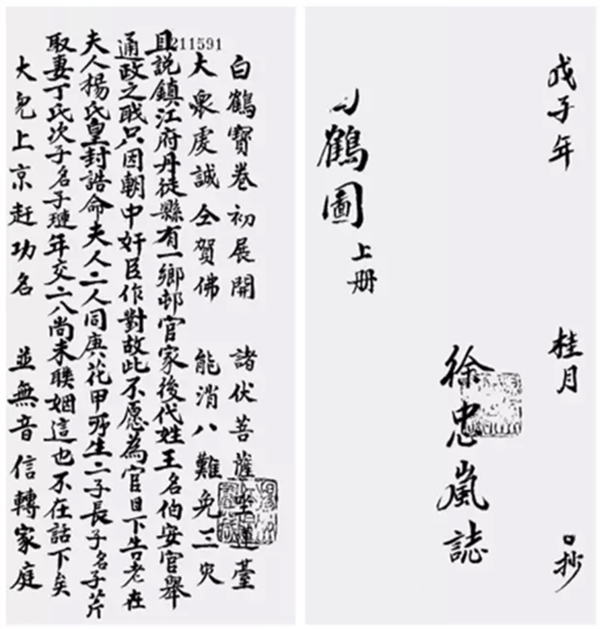 戊子年 桂月 口抄
徐忠嵐誌
鶴圖 上册
211591
白鶴寳卷初展開 諸伏菩薩坐蓮臺
大衆虔誠仝賀佛 能消八難免三災
且説鎮江府丹徒縣有一鄉邨官家後代姓王名伯安官舉
通政之職只因朝中奸臣作對故此不愿為官目下告老在
夫人楊氏皇封誥命夫人二人同庚花甲所生二子長子名子芹
取妻丁氏次子名子璉年交二八尚未聯姻這也不在話下矣
大兒上京赶功名 並無音信轉家庭